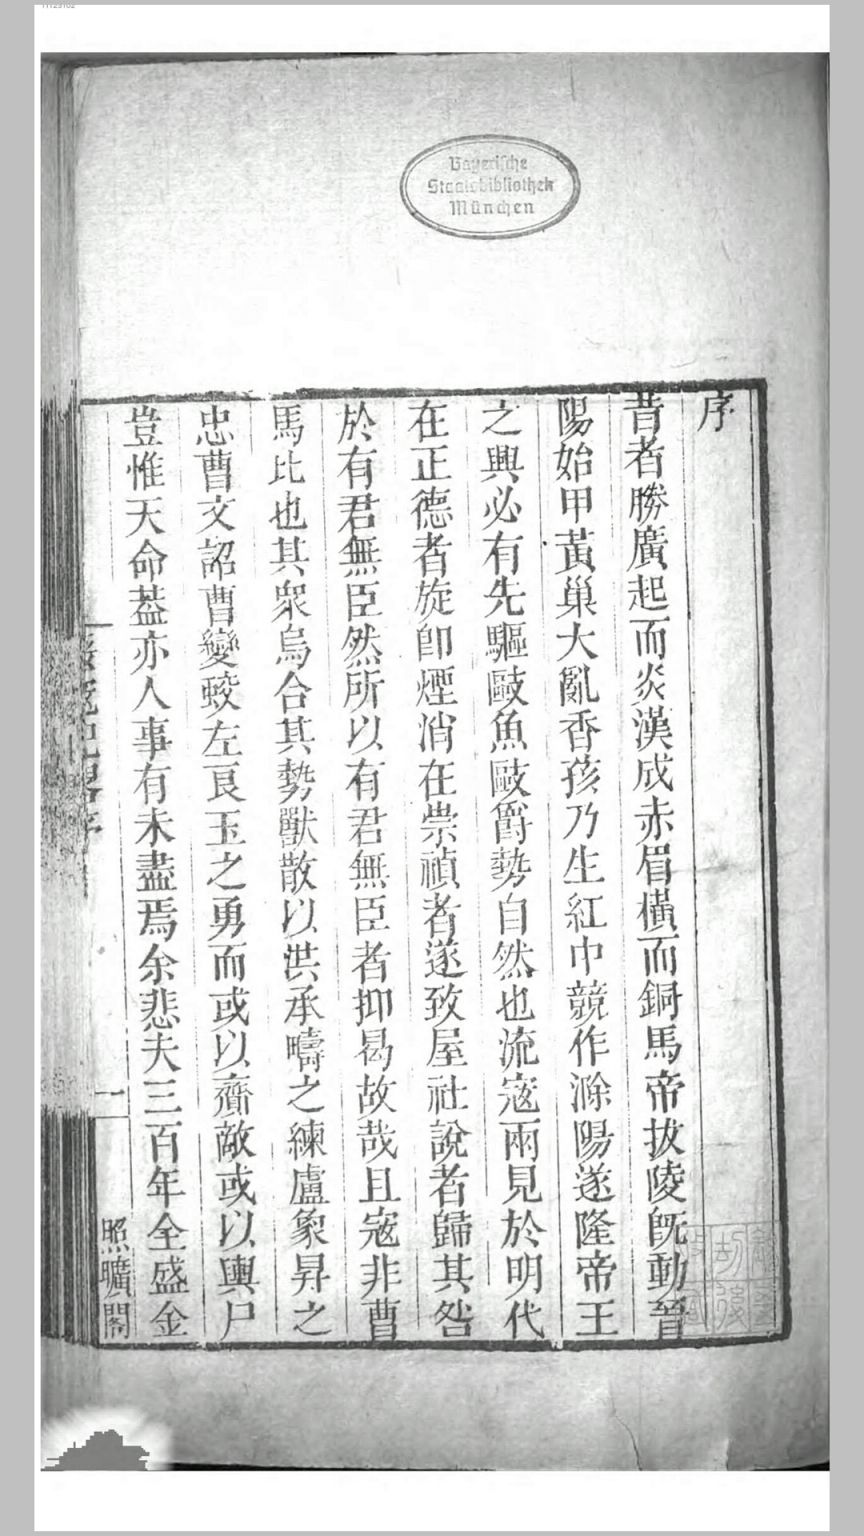 Bayerische
Staatsbibliothek
München
序
昔者勝廣起而炎漢成赤眉橫而銅馬帝拔陵旣動晉
陽始甲黃巢大亂香孩乃生紅巾競作滁陽遂隆帝王
之興必有先驅敺魚敺爵勢自然也流寇兩見於明代
在正德者旋卽煙消在崇禎者遂致屋社說者歸其咎
於有君無臣然所以有君無臣者抑曷故哉且寇非曹
馬比也其衆烏合其勢獸散以洪承疇之練盧象昇之
忠曹文詔曹變蛟左良玉之勇而或以齎敵或以輿尸
豈惟天命葢亦人事有未盡焉余悲夫三百年全盛金
序
一
照曠閣